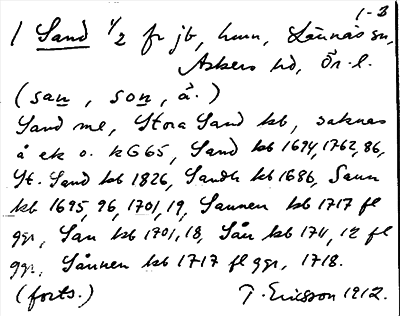 1-3
1 Sand 1/2 fr jb, hmn, Lännäs sn,
Askers hd, Ör. l.
(san, son, å.)
Sand me, Stora Sand kb, saknas
å ek o. KG65, Sand kb 1694, 1762, 86,
St. Sand kb 1826, Sandh kb 1686, Sann
kb 1695, 96, 1701, 19, Sannen kb 1717 fl
ggr, San kb 1701, 18, Sån kb 1711, 12 fl
ggr, Sånnen kb 1717 fl ggr, 1718.
(forts.) T. Ericsson 1912.